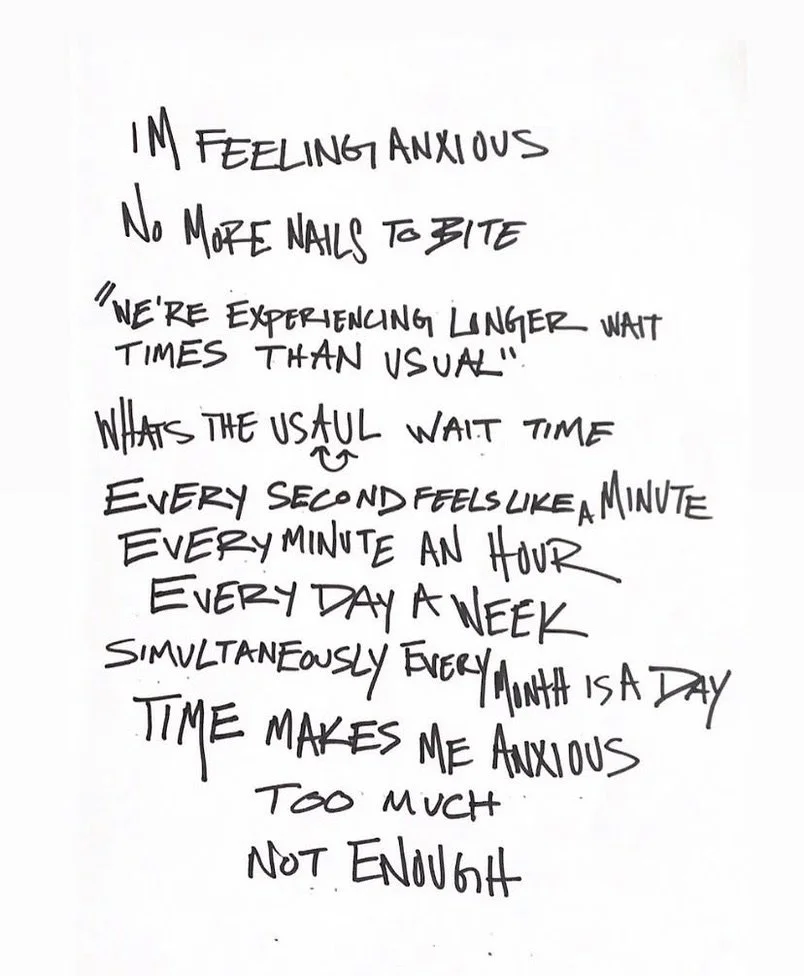 IM FEELING ANXIOUS
NO MORE NAILS TO BITE
"WE'RE EXPERIENCING LONGER WAIT
TIMES THAN USUAL"
WHATS THE USAUL WAIT TIME
EVERY SECOND FEELS LIKE A MINUTE
EVERY MINUTE AN HOUR
EVERY DAY A WEEK
SIMULTANEOUSLY EVERY MONTH IS A DAY
TIME MAKES ME ANXIOUS
TOO MUCH
NOT ENOUGH